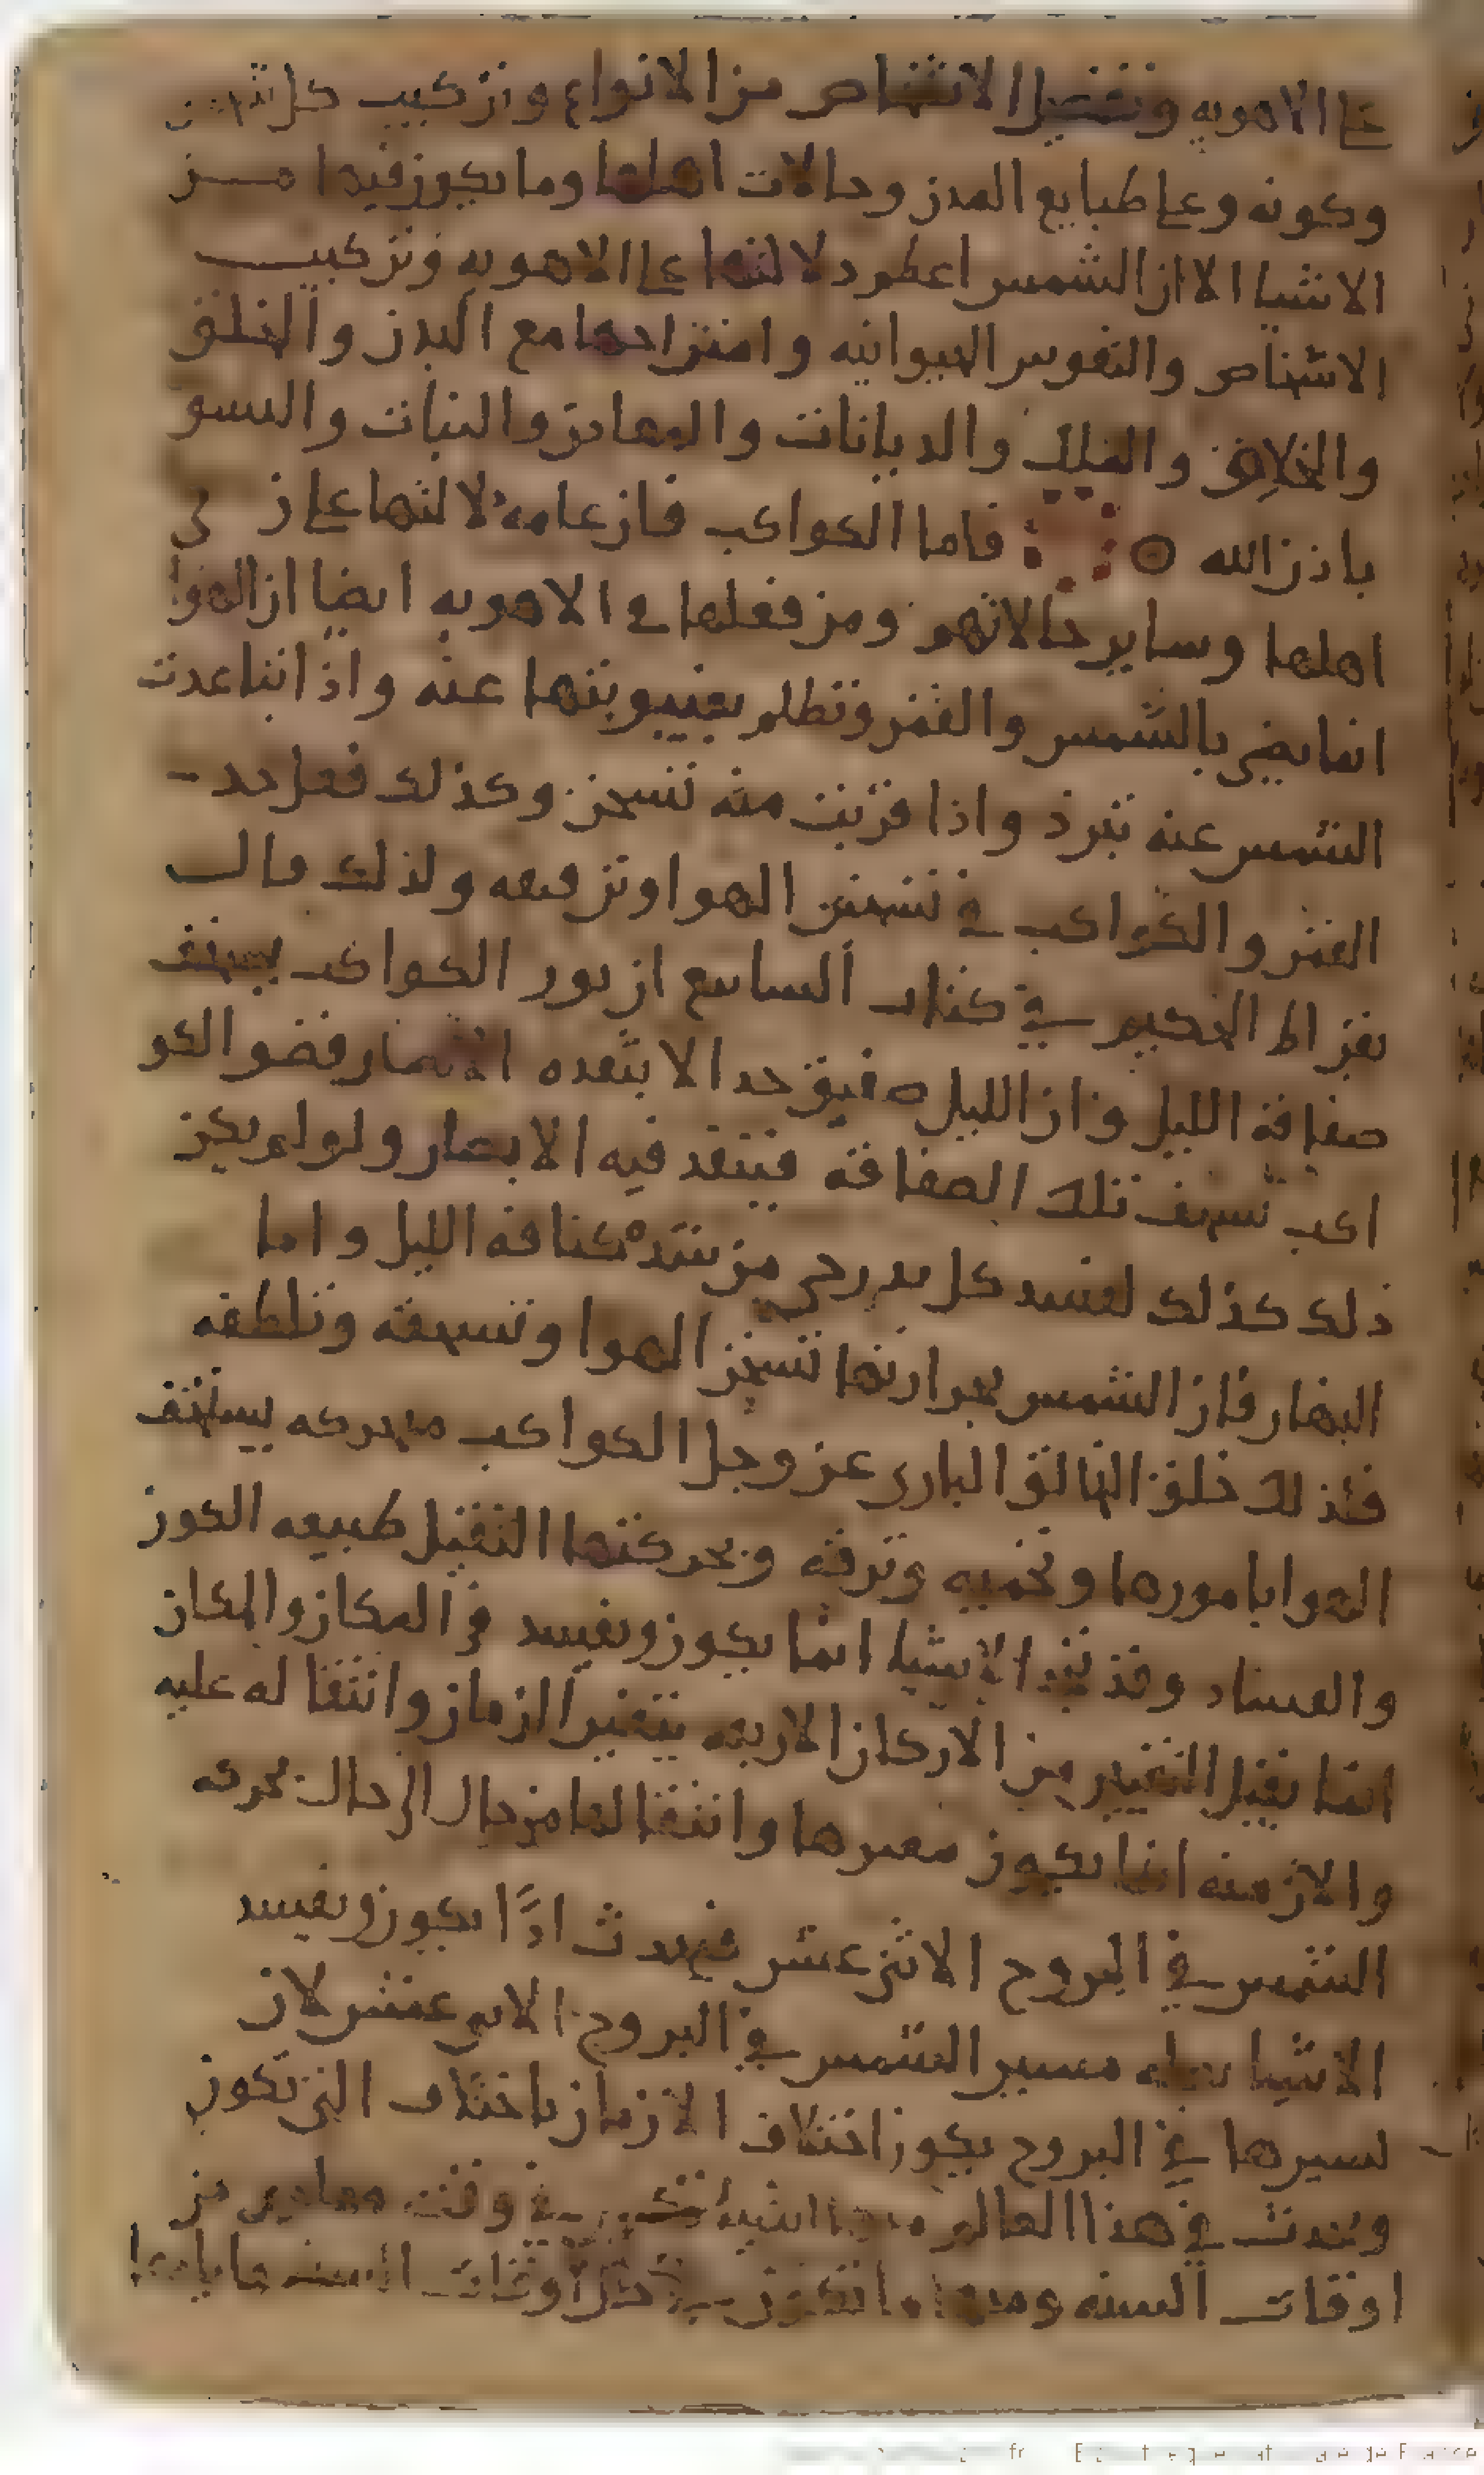 على الاهويه وتفصيل الاشخاص من الانواع وتركيب كل شخص
وكونه وعلى طبايع المدن وحالات اهلها وما يكون فيها من
الاشيا الا ان الشمس اعظم دلالتها على الاهويه وتركيب
الاشخاص والنفوس الحيوانيه وامتزاجها مع البدن والخلق
والخلايق والملك والديانات والمعادن والنبات والنسو
باذن الله فاما الكواكب فان عامه دلالتها على
اهلها وساير حالاتهم ومن فعلها في الاهويه ايضا ان الهوا
انما يضي بالشمس والقمر وتظلم بغيبوبتها عنه واذا تباعدت
الشمس عنه تبرد واذا قربت منه تسخن وكذلك فعل
القمر والكواكب في تسخين الهوا وترقيقه ولذلك قال
بقراط الحكيم في كتاب السابيع ان نور الكواكب يسخف
صفاقة الليل وان الليل صفيق جدا لا ينفذه الابصار فضو الكو
اكب تسخف تلك الصفاقة فينفذ فيه الابصار ولو لم يكن
ذلك كذلك لفسد كل بدن حي من شدة كثافة الليل واما
النهار فان الشمس بحرارتها تسخن الهوا وتسخفه وتلطفه
فلذلك خلق الخالق الباري عز وجل الكواكب متحركه يسخف
الهوا بامورها وتحميه وترقه وبحركتها التقبل طبيعه الكون
والفساد وقد نجد الاشيا انما يكون ويفسد في المكان والمكان
انما يقبل التغيير من الاركان الاربعه بتغير الزمان وانتقاله عليه
والازمنه انما يكون تغيرها وانتقالها من حال الى حال بحركه
الشمس في البروج الاثني عشر فيحدث اذًا يكون ويفسد
الاشيا بعله مسير الشمس في البروج الاثني عشر لان
لسيرها في البروج يكون اختلاف الازمان باختلاف التي تكون
وتحدث في هذا العالم منها اشيا تكون في وقت معلوم من
اوقات السنه ومنها ما تكون في كل اوقات السنه